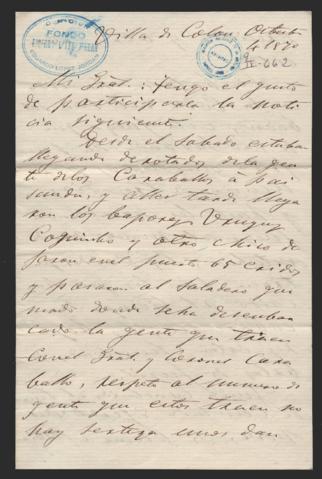 FONDO
Villa de Colon, Octubre
4 1870
662
Mi Gral.: Tengo el gusto
de participarle la noti
cia siguiente.
Desde el Sabado estaban
llegando derrotados dela gen
te delos Caraballos á pai
sandu, y ayer tarde llega
ron los bapores Uruguay
Coquimbo y otro chico de
jaron en el puerto 65 eridos
y pasaron al Saladero que
mado donde seha desembar
cado la gente que traen
Coronel Cara
ballo, respeto al numero de
gente que estos traen no
hay serteza unos dan